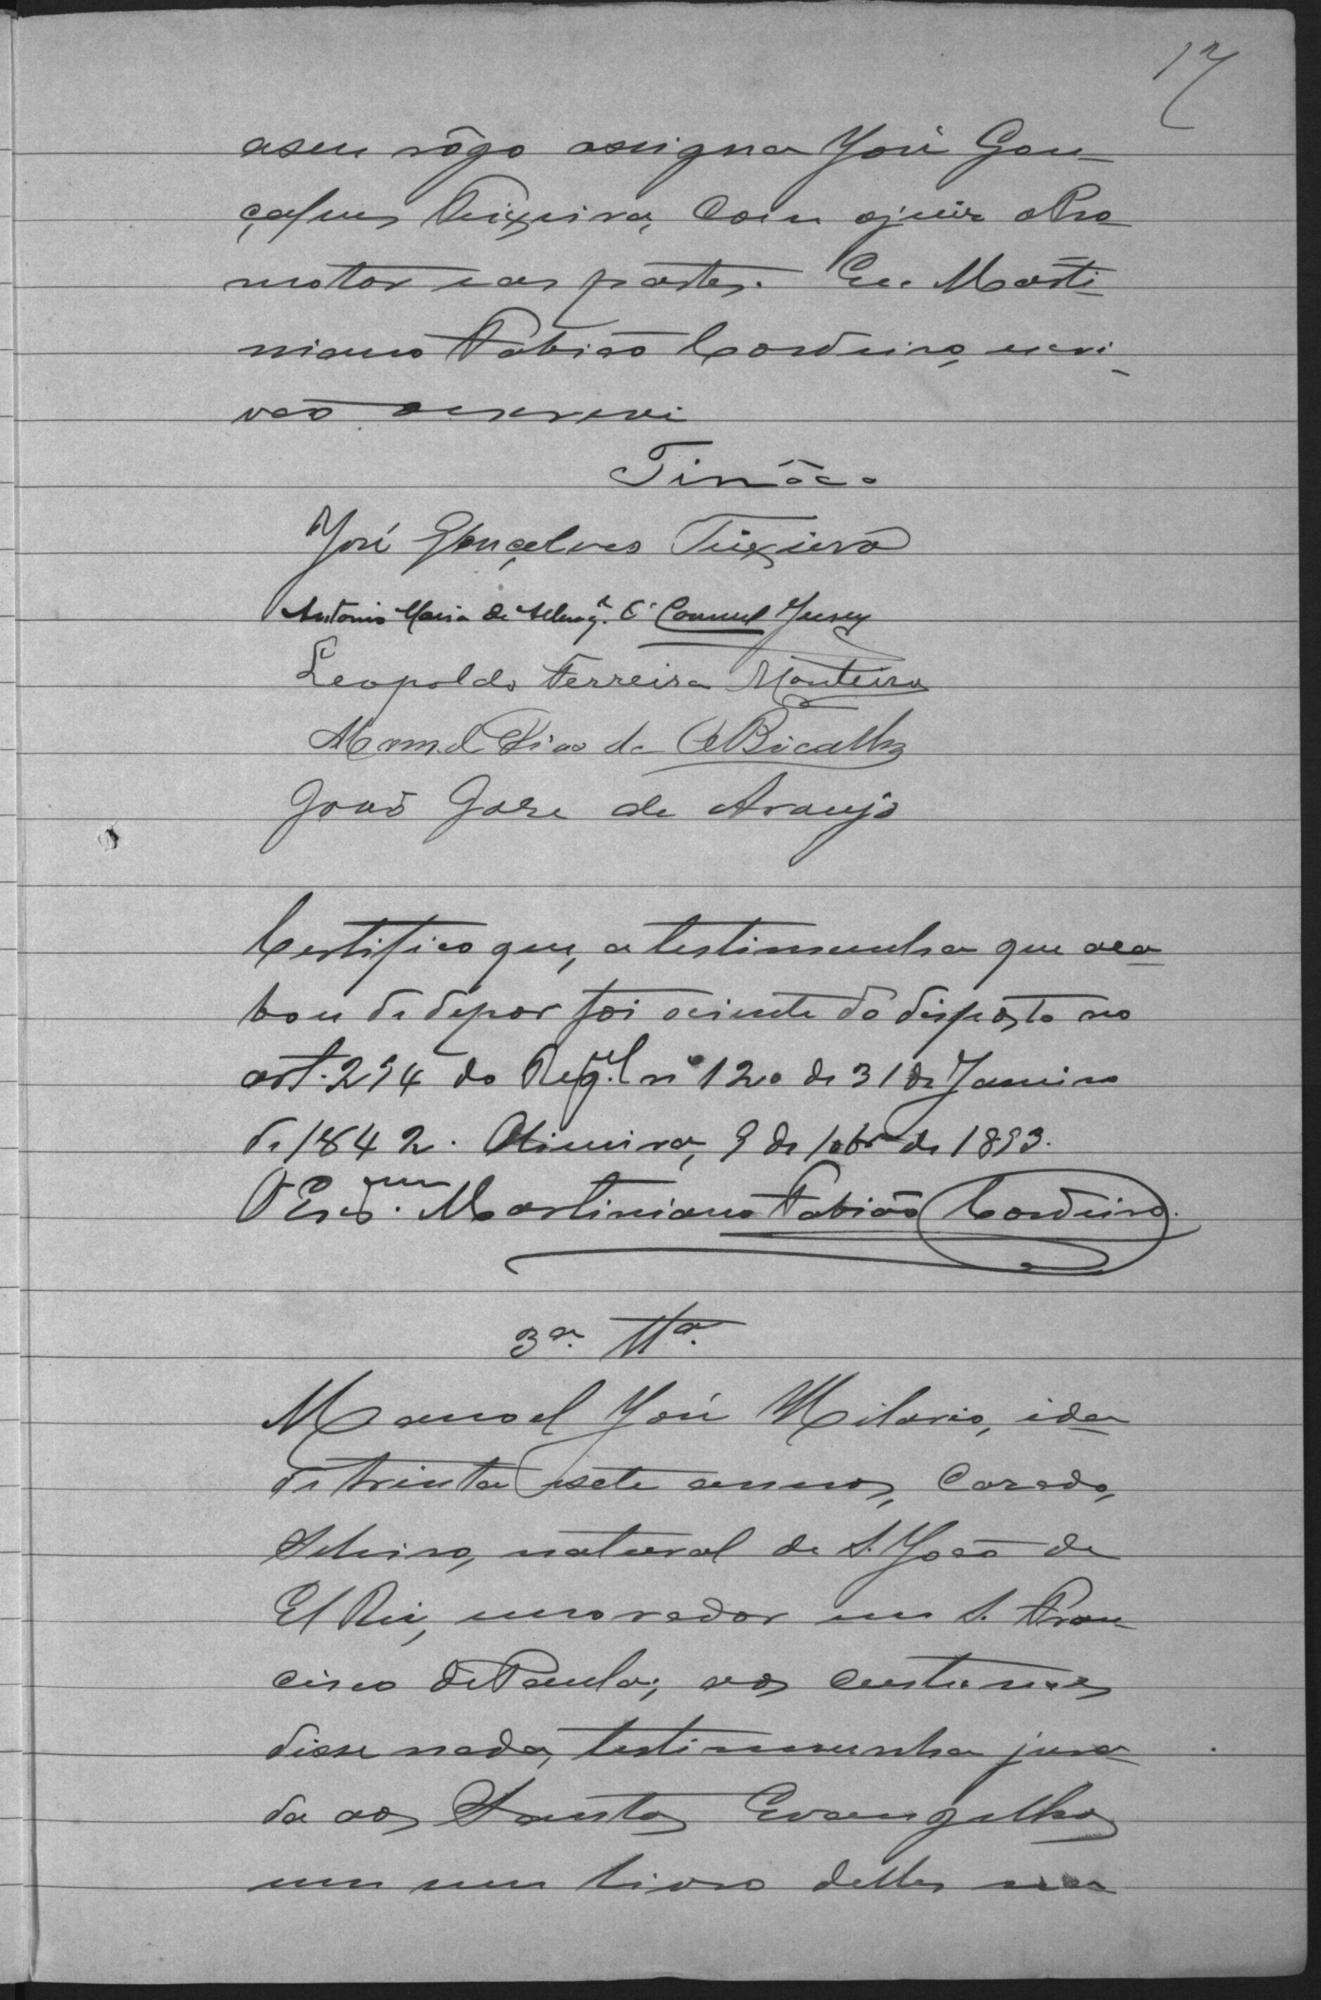 17
a seu rôgo assigna José Gon-
çalves Teixeira, com o juiz o Pro-
motor e as partes. Eu Marti-
niano Fabião Cordeiro, escri-
vão o escrevi
Tinôco
José Gonçalves Teixeira
Antonio Maria de
Leopoldo Ferreira Monteiro
Manoel Dias de Sá Bicalho
João Jose de Araujo
Certifico que, a testimunha que aca-
bou de depor foi sciente do disposto no
art. 294 do Reg.l nº 120 de 31 de Janeiro
de 1842. Oliveira, 9 de 10br de 1893.
O Escr.m Martiniano Fabião Cordeiro.
3ª. Ttª.
Manoel José Hilario, ida-
de trinta e sete annos, casado,
Seleiro, natural de S. João de
El Rei, morador em S. Fran-
cisco de Paula; aos custumes
disse nada, testimunha jura-
da aos Santos Evangelhos
em um livro delles